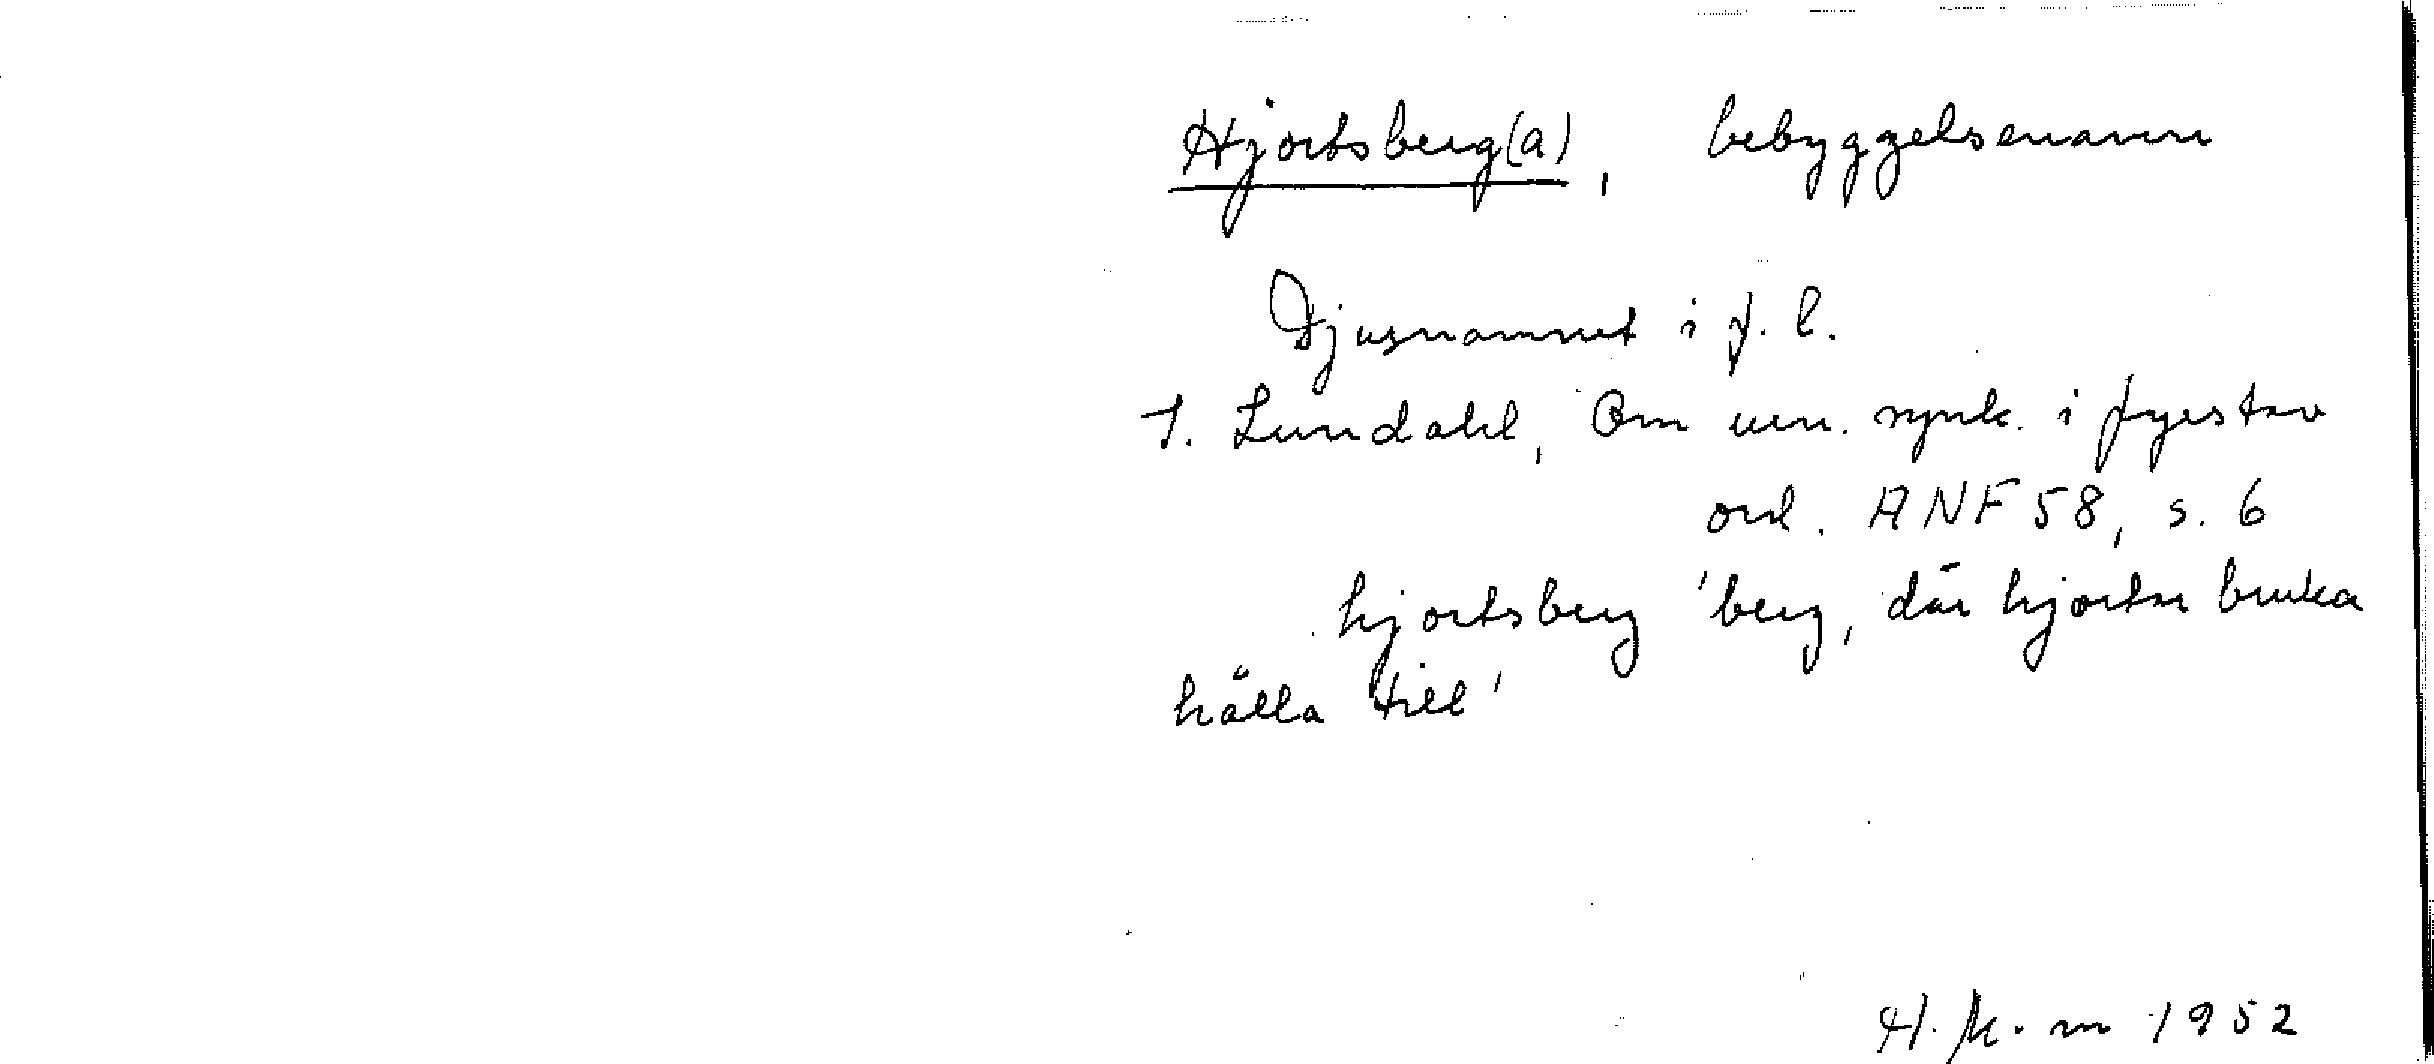 Hjortsberg(a), bebyggelsenamn
Djurnamnet i f. l.
I. Lundahl, Om uen. synk. i fyrstav
ord. ANF 58, s. 6
hjortsberg 'berg, där hjortar bruka
hålla till'
H. K. m 1952